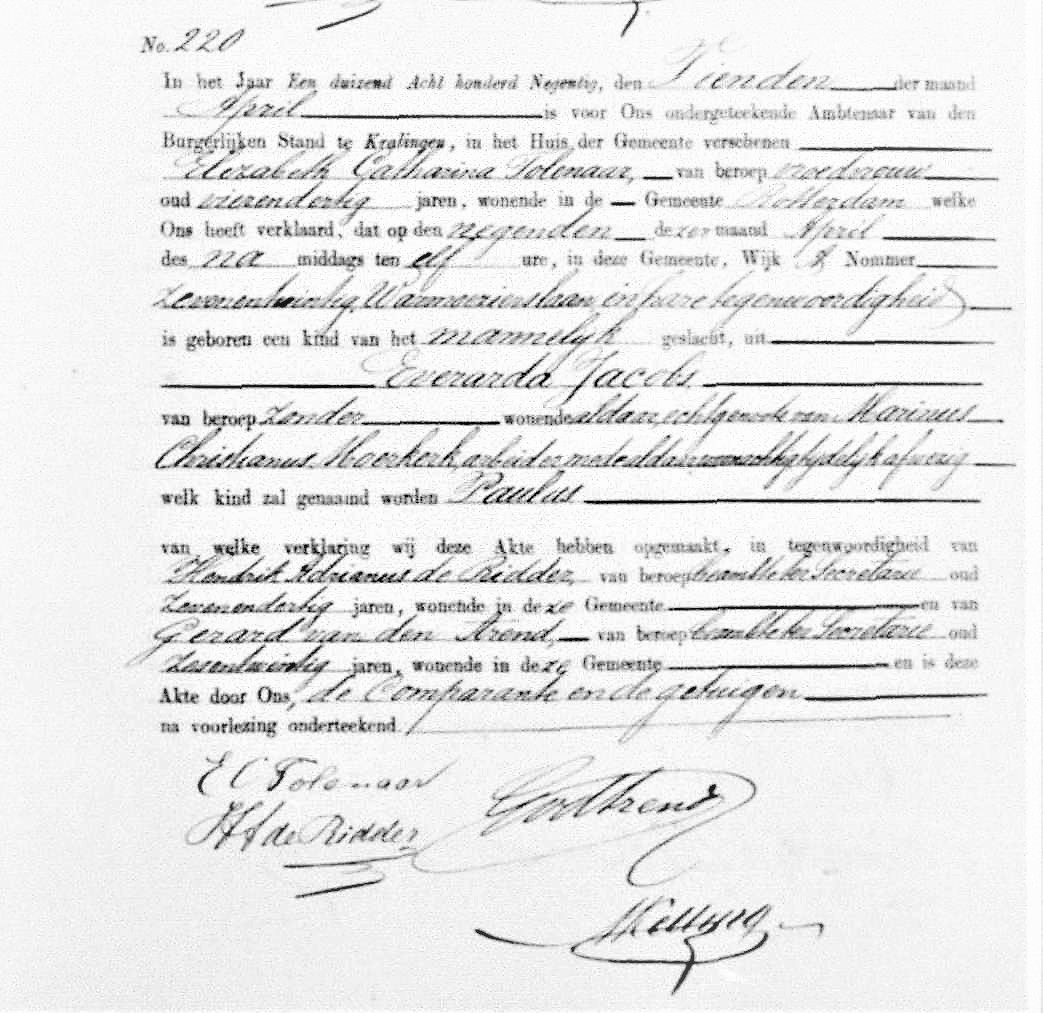 No. 220
In het Jaar Een duizend Acht honderd Negentig, den Tienden der maand
April is voor Ons ondergeteekende Ambtenaar van den
Burgerlijken Stand te Kralingen, in het Huis der Gemeente verschenen
Elizabeth Catharina Tolenaar, van beroep vroedvrouw
oud vierendertig jaren, wonende in de Gemeente Rotterdam welke
Ons heeft verklaard, dat op den negenden dezer maand April
des na middags ten elf ure, in deze Gemeente, Wijk Nommer
Zevenentwintig, in hare tegenwoordigheid
is geboren een kind van het mannelijk geslacht, uit
Everarda Jacobs
van beroep Zonder wonende aldaar, echtgenoote van Marinus
Christianus Moerkerk, arbeider mede aldaar woonachtig tijdelijk afwezig
welk kind zal genaamd worden Paulus
van welke verklaring wij deze Akte hebben opgemaakt, in tegenwoordigheid van
Hendrik Adrianus de Ridder, van beroep beambte ter Secretarie oud
Zevenendertig jaren, wonende in deze Gemeente en van
Gerard van den Arend, van beroep beambte ter Secretarie oud
Zesentwintig jaren, wonende in deze Gemeente en is deze
Akte door Ons, de Comparante en de getuigen
na voorlezing onderteekend.
E C Tolenaar
GvdArend
HAde Ridder